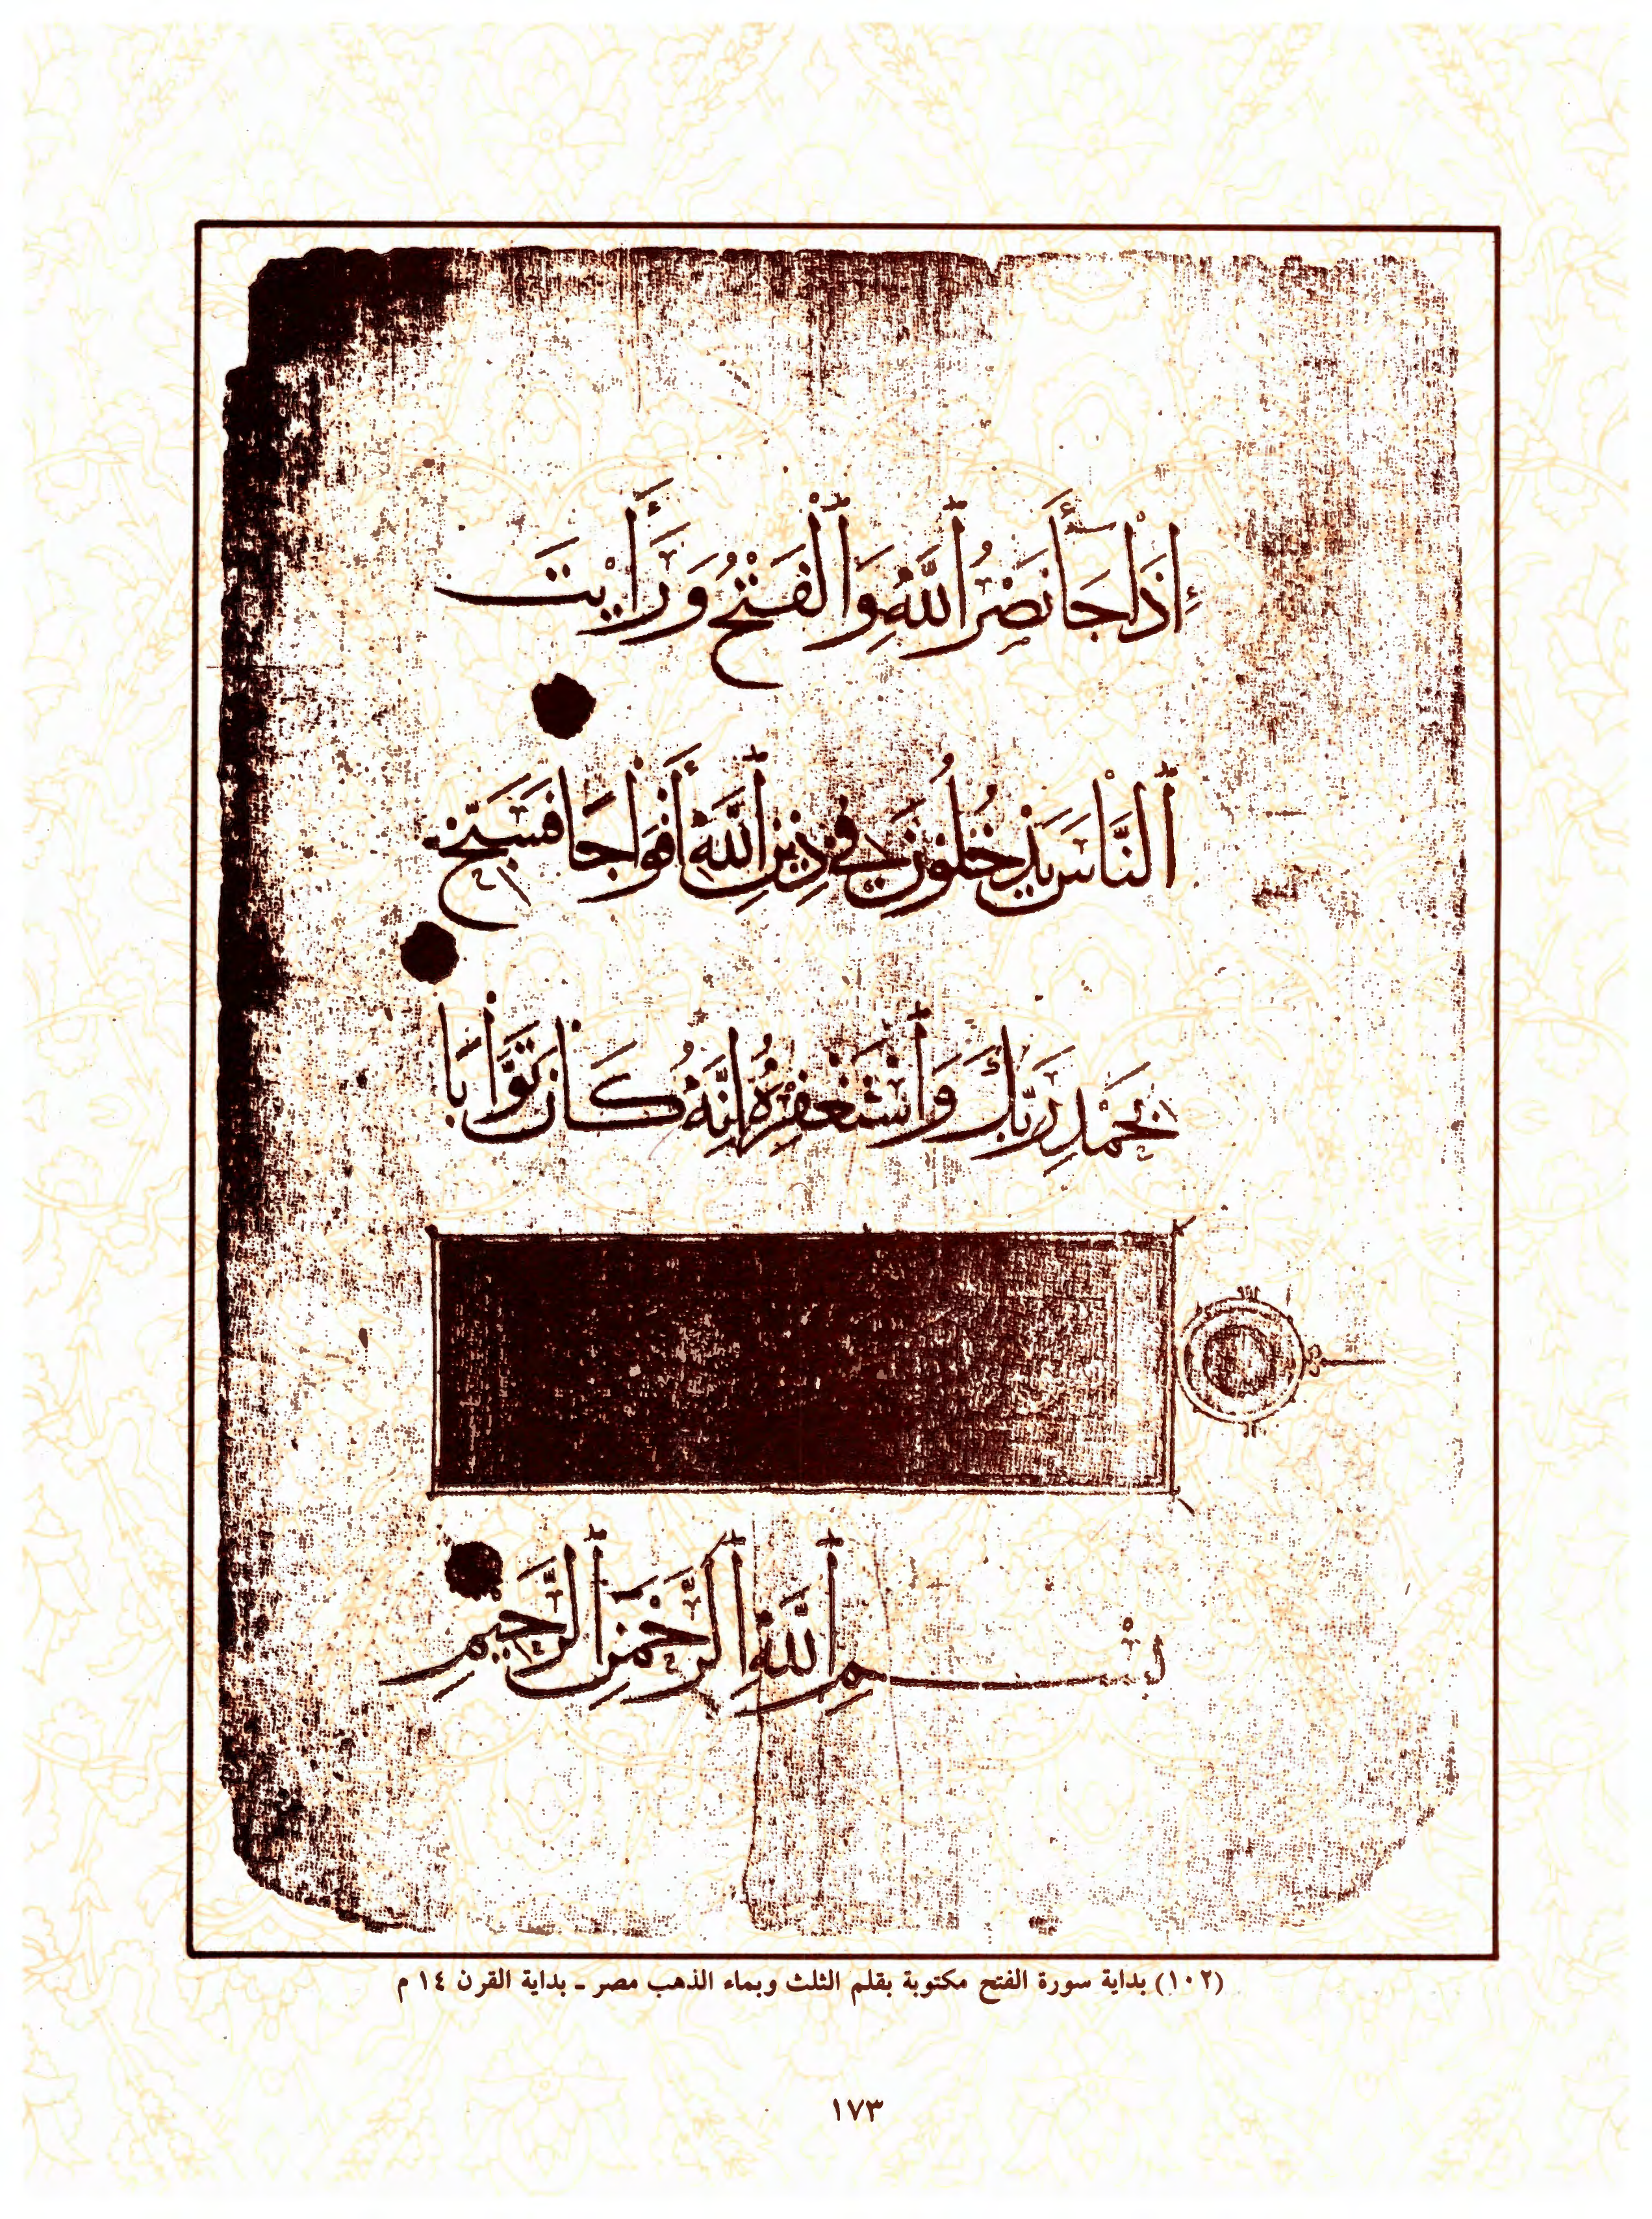 إِذَا جَآ نَصْرُ ٱللَّهِ وَٱلْفَتْحُ وَرَأَيْتَ
ٱلنَّاسَ يَدْخُلُونَ فِي دِينِ ٱللَّهِ أَفْوَاجًا فَسَبِّحْ
بِحَمْدِ رَبِّكَ وَٱسْتَغْفِرْهُ إِنَّهُ كَانَ تَوَّابًا
بِسْمِ ٱللَّهِ ٱلرَّحْمَٰنِ ٱلرَّحِيمِ
(١٠٢) بداية سورة الفتح مكتوبة بقلم الثلث وبماء الذهب مصر ـ بداية القرن ١٤ م
١٧٣